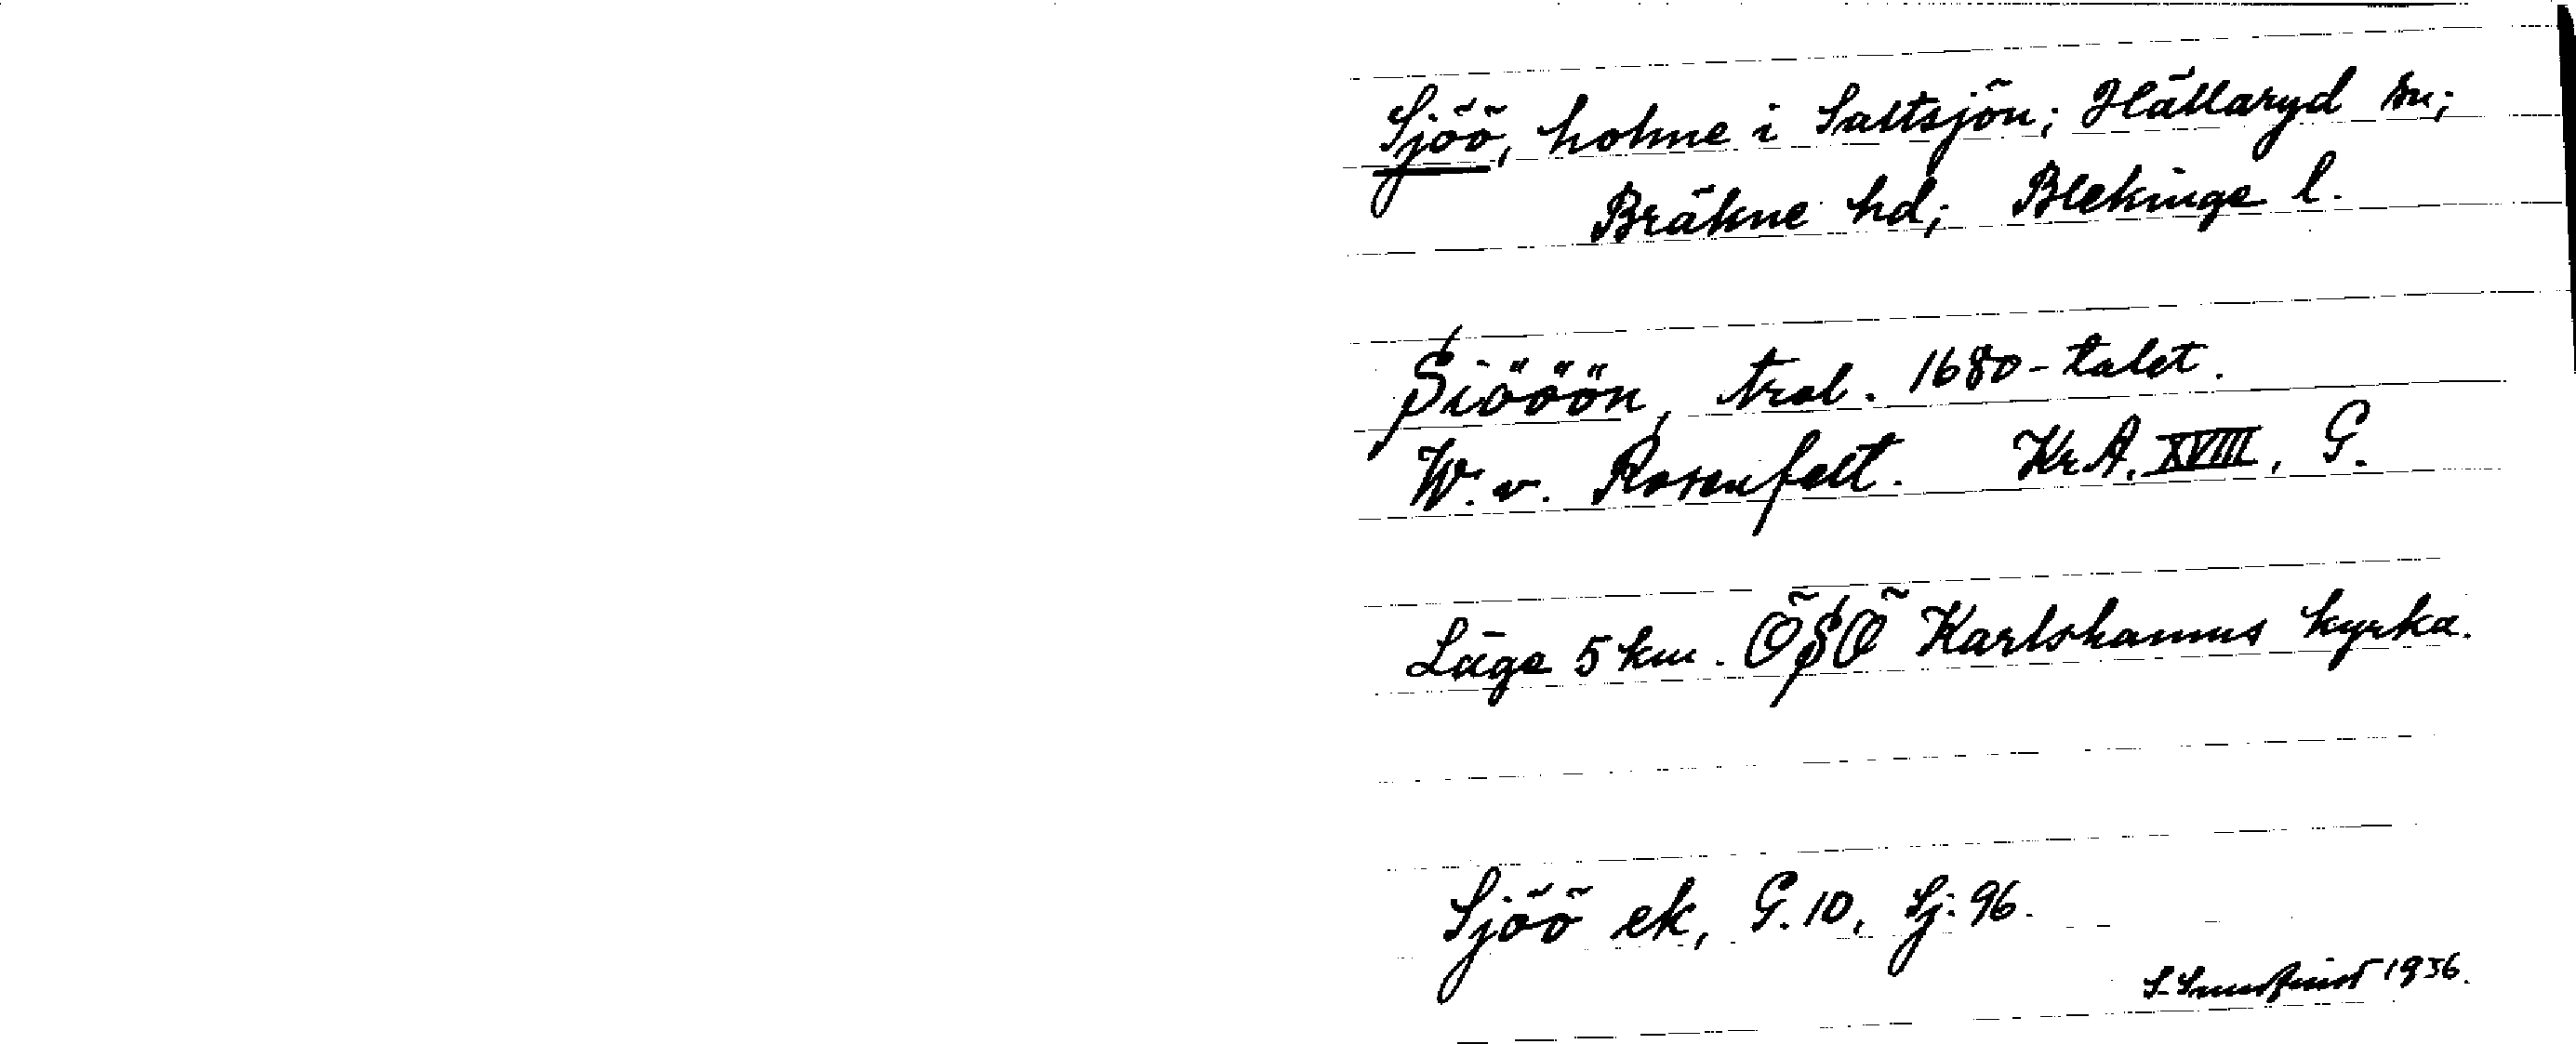 Sjöö, holme i Saltsjön; Hällaryd sn;
Bräkne hd; Blekinge l.
Siööön, trol. 1680-talet.
W. v. Rosenfelt. Kr.A. XVIII, G.
Läge 5 km. ÖSÖ Karlshamns kyrka.
Sjöö ek, G. 10, Sj: 96.
S. 1936.